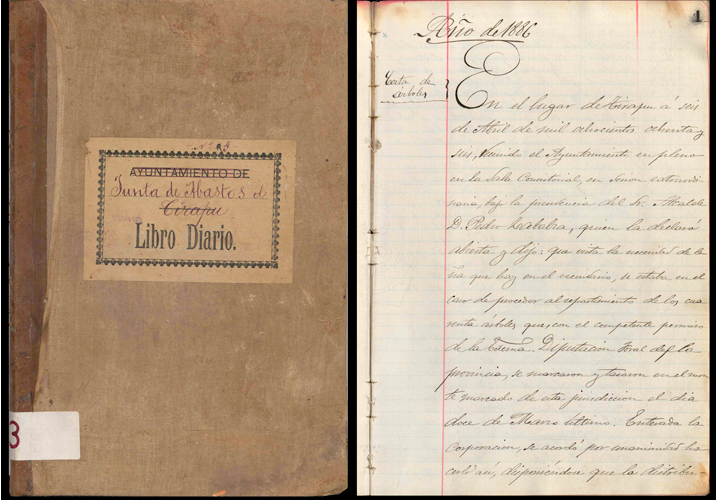 Nº 94
AYUNTAMIENTO DE
Junta de Abastos de
Tirapu
Libro Diario.
3
1
Año de 1886
Corta de
árboles
En el lugar de Tirapu á seis
de Abril de mil ochocientos ochenta y
seis, reunido el Ayuntamiento en pleno
en la Sala Consistorial, en sesion extraordi
naria, bajo la presidencia del Sr. Alcalde
D. Pedro, quien la declaró
abierta y dijo: que vista la necesidad de le
ña que hay en el vecindario, se estaba en el
caso de proceder al repartimiento de los cua
renta árboles que, con el competente permiso
de la Excma. Diputacion foral de la
provincia, se marcaron y tasaron en el mon
te marcado de esta jurisdiccion el dia
doce de Marzo último. Enterada la
Corporacion, se acordó por unanimidad ha
cerlo así, disponiéndose que la distribu